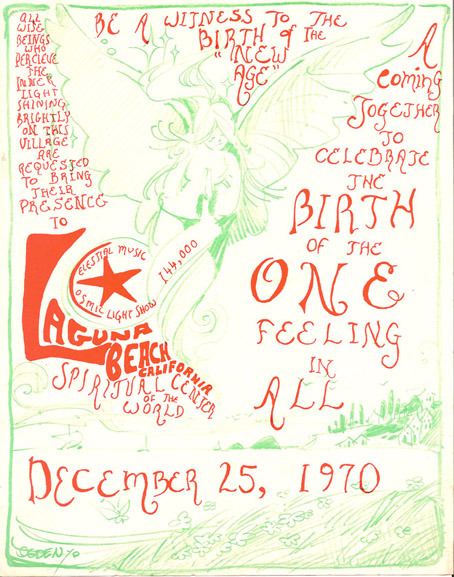 ALL
WISE
BEINGS
WHO
PERCIEVE
THE
INNER
LIGHT
SHINING
BRIGHTLY
ON THIS
VILLAGE
ARE
REQUESTED
TO BRING
THEIR
PRESENCE
TO
BE A WITNESS TO THE
BIRTH of THE
"NEW
AGE"
A
COMING
TOGETHER
TO
CELEBRATE
THE
BIRTH
OF THE
ONE
FEELING
IN
ALL
CELESTIAL MUSIC
COSMIC LIGHT SHOW
144,000
LAGUNA
BEACH
CALIFORNIA
SPIRITUAL CENTER
OF THE
WORLD
DECEMBER 25, 1970
OGDEN 70